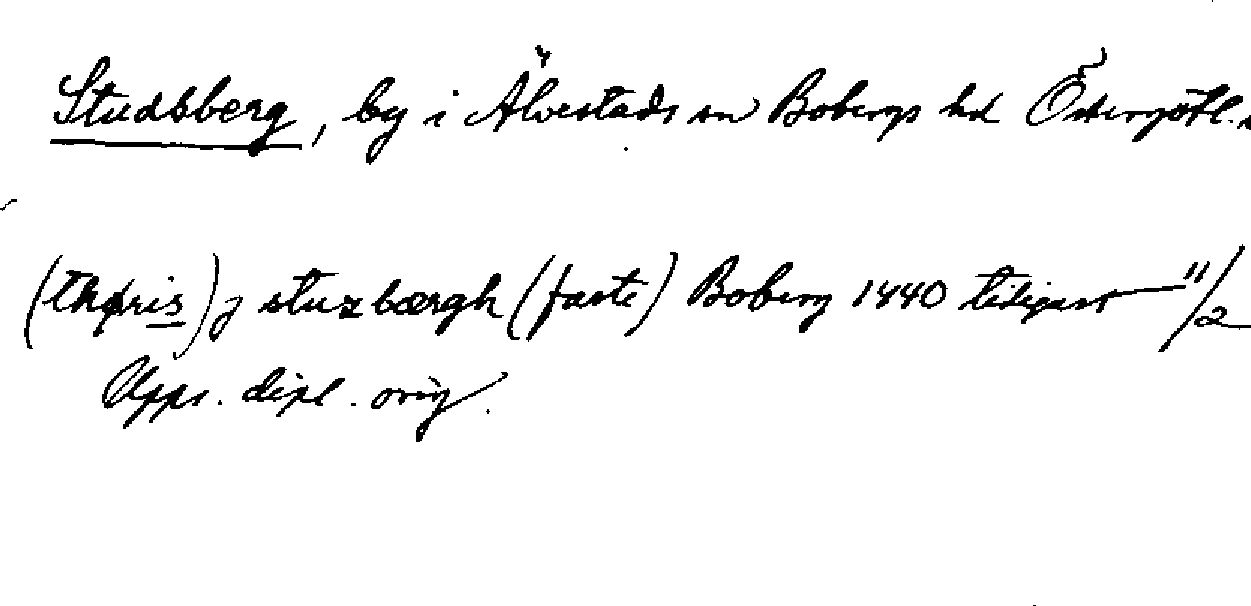 Studsberg, by i Älvestads sn Bobergs hd Östergötl.
(thøris) j stuzbærgh (faste) Boberg 1440 tidigast 11/2
Upps. dipl. orig.